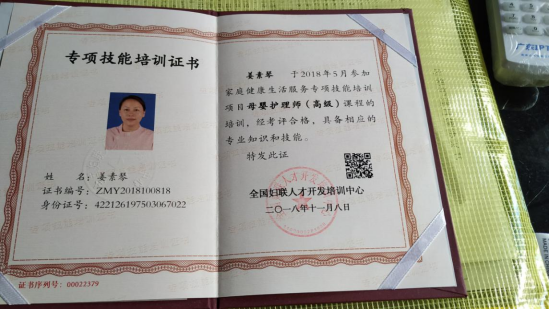 专项技能培训证书
姓 名：姜素琴
证书编号：ZMY2018100818
身份证号：422126197503067022
证书序列号：00022379
姜素琴 于2018年5月参加
家庭健康生活服务专项技能培训
项目母婴护理师（高级）课程的
培训，经考评合格，具备相应的
专业知识和技能。
特发此证
全国妇联人才开发培训中心
二〇一八年十一月八日